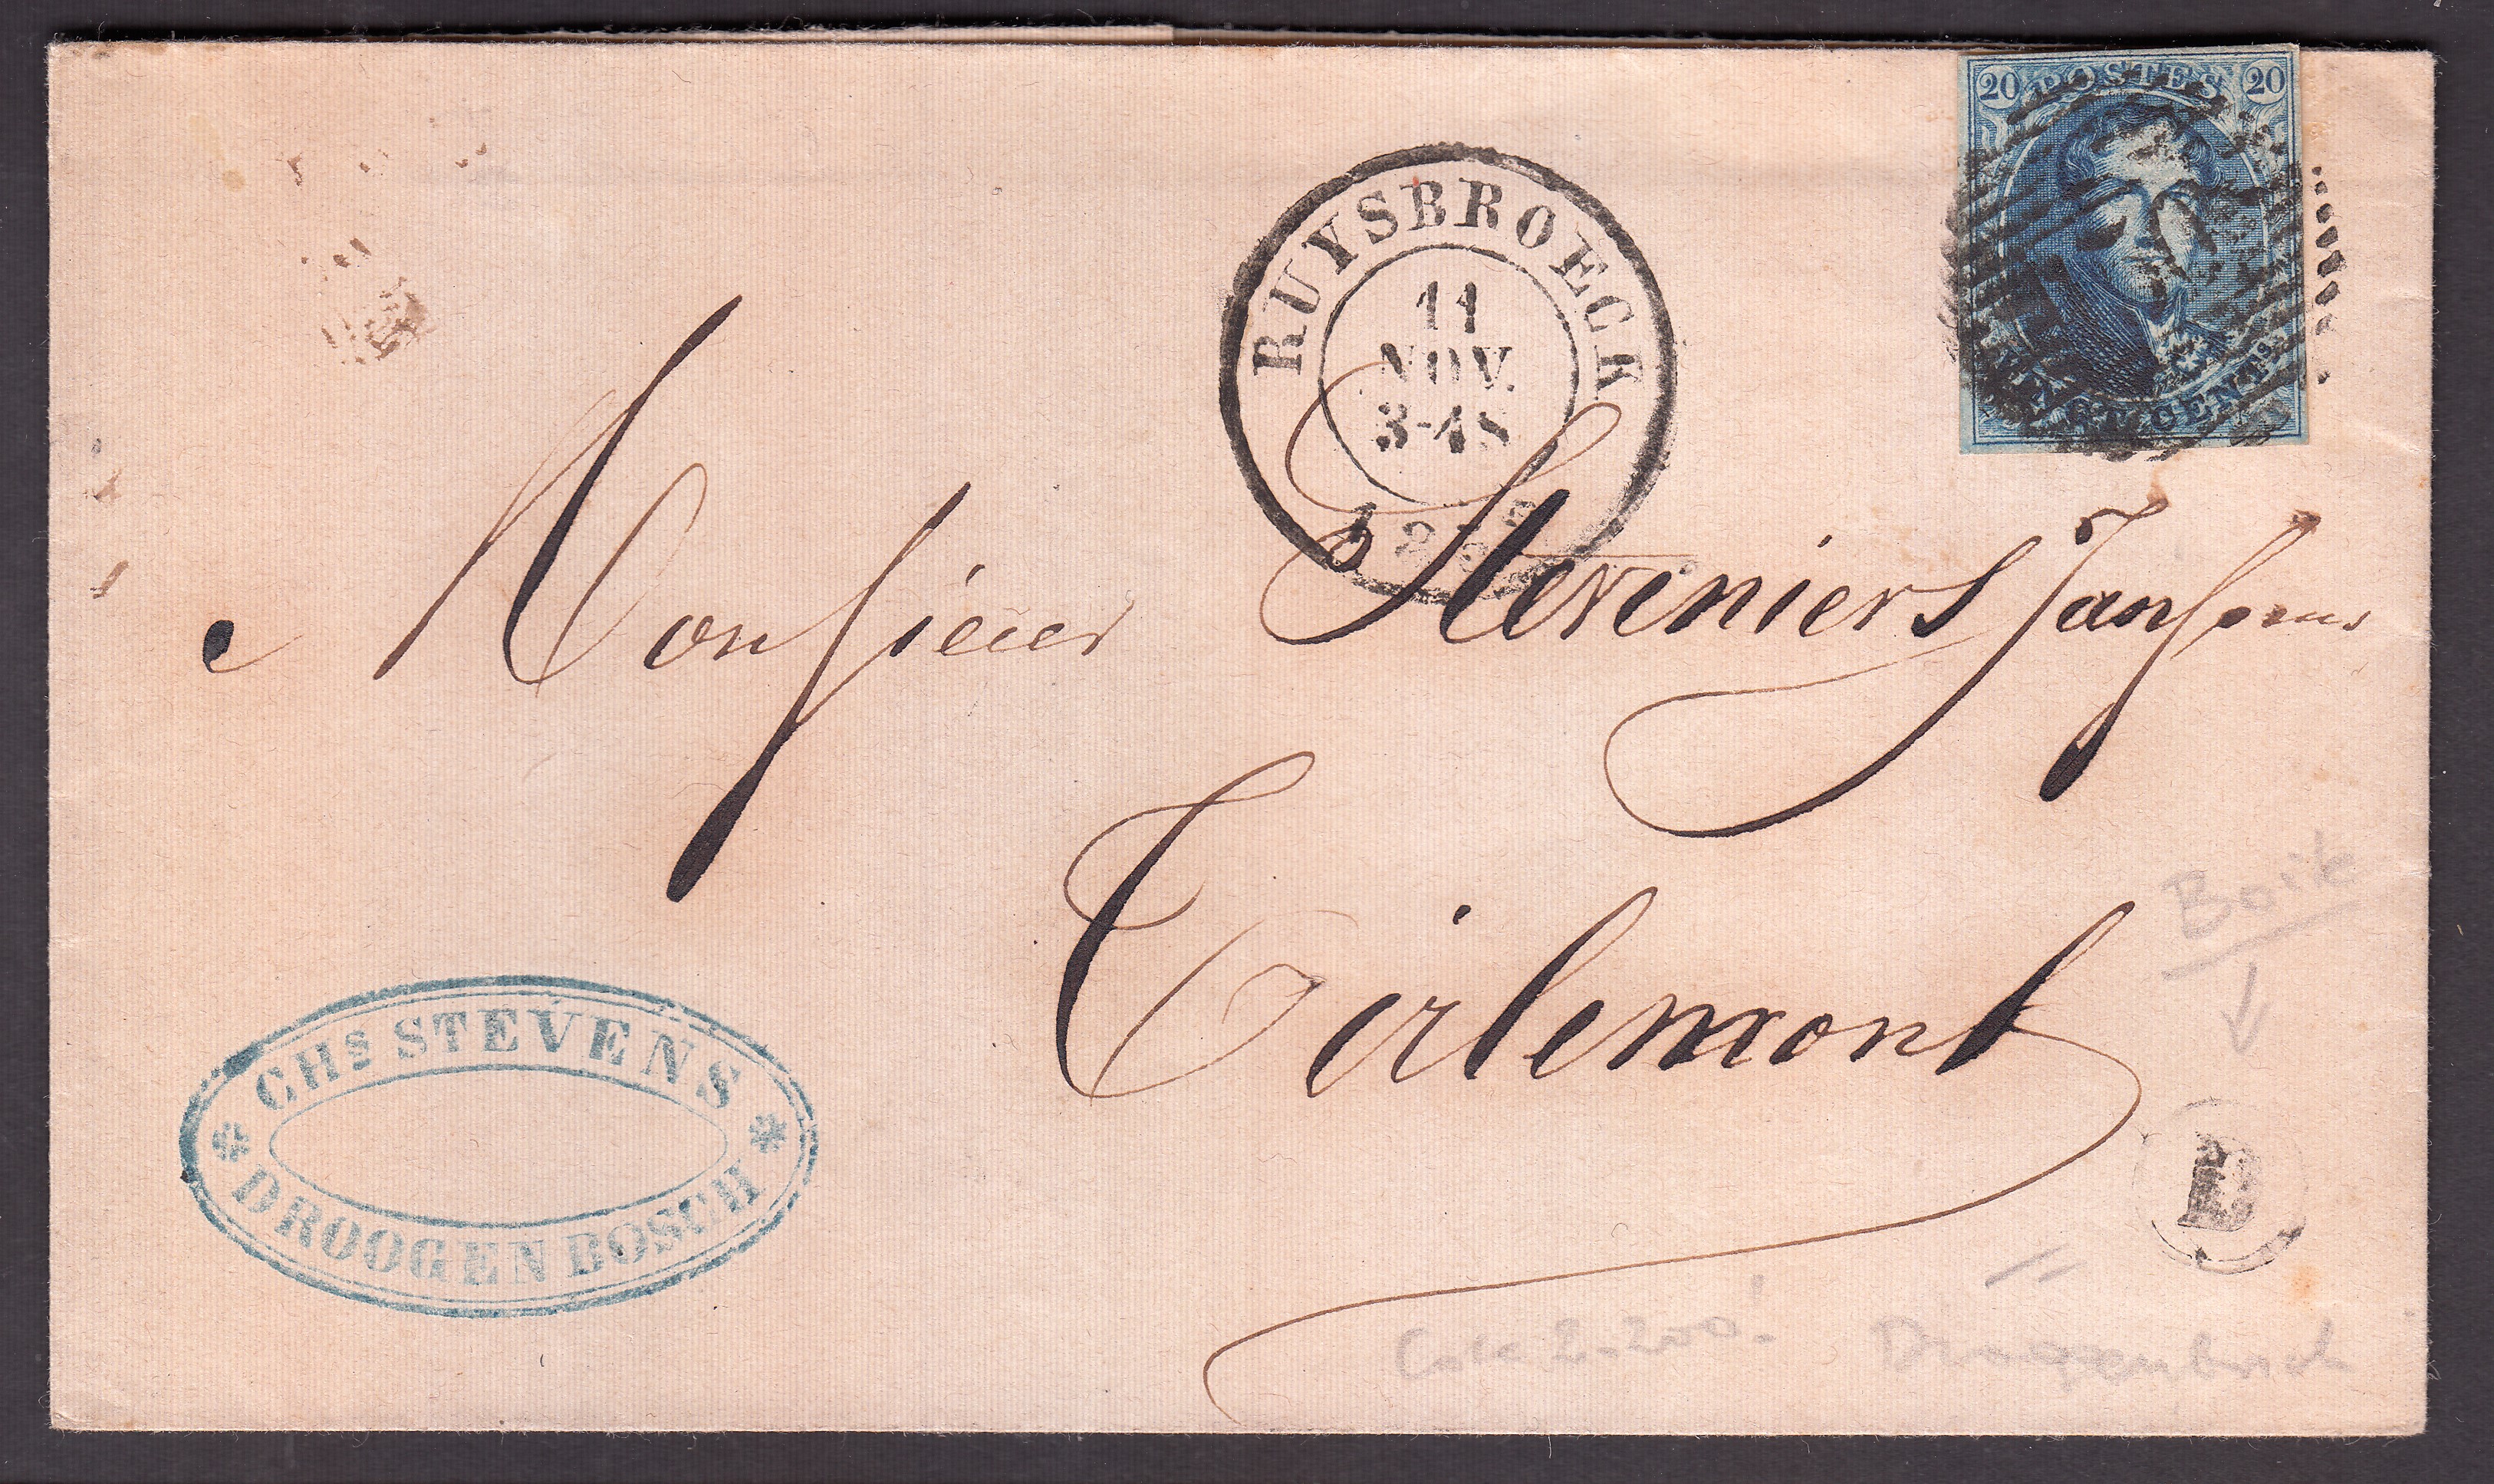 20 POSTES 20
VINGT CENTS
RUYSBROECK
11
NOV.
3-4S
Monsieur Steveniers Janssens
Tirlemont
Boite
CHS STEVENS
DROOGENBOSCH
D
Cote 2.200!
Droogenbosch